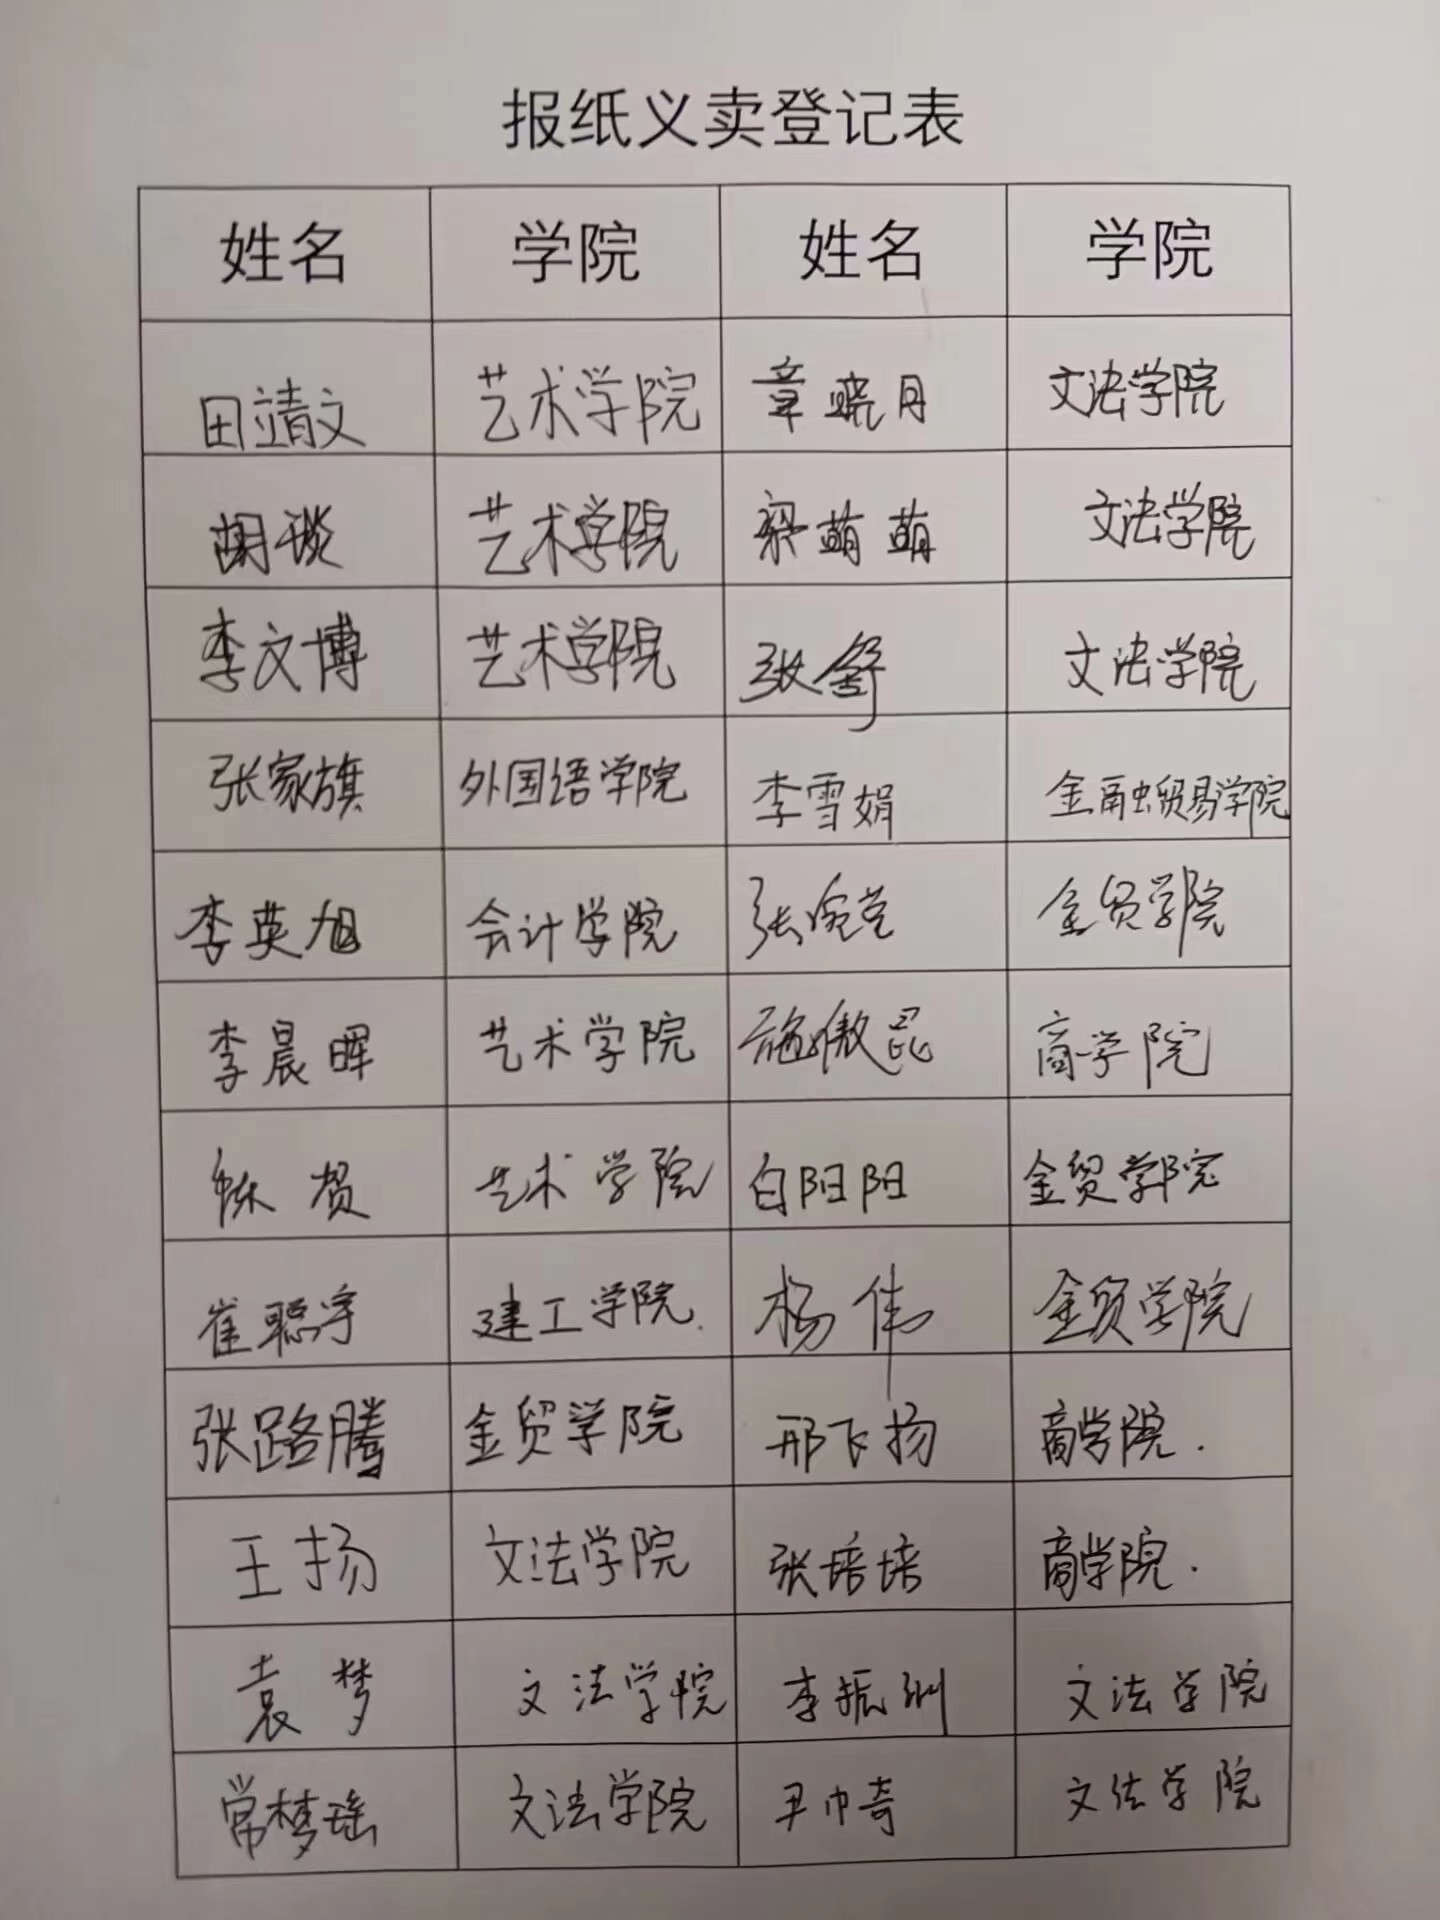 报纸义卖登记表
姓名 学院 姓名 学院
田靖文 艺术学院 章晓月 文法学院
胡琰 艺术学院 梁萌萌 文法学院
李文博 艺术学院 张舒 文法学院
张家旗 外国语学院 李雪娟 金融贸易学院
李英旭 会计学院 张婉莹 金贸学院
李晨晖 艺术学院 施傲昆 商学院
艺术学院 白阳阳 金贸学院
崔聪宇 建工学院. 杨伟 金贸学院
张路腾 金贸学院 邢飞扬 商学院.
王扬 文法学院 张培培 商学院.
袁梦 文法学院 李振洲 文法学院
常梦瑶 文法学院 尹巾奇 文法学院